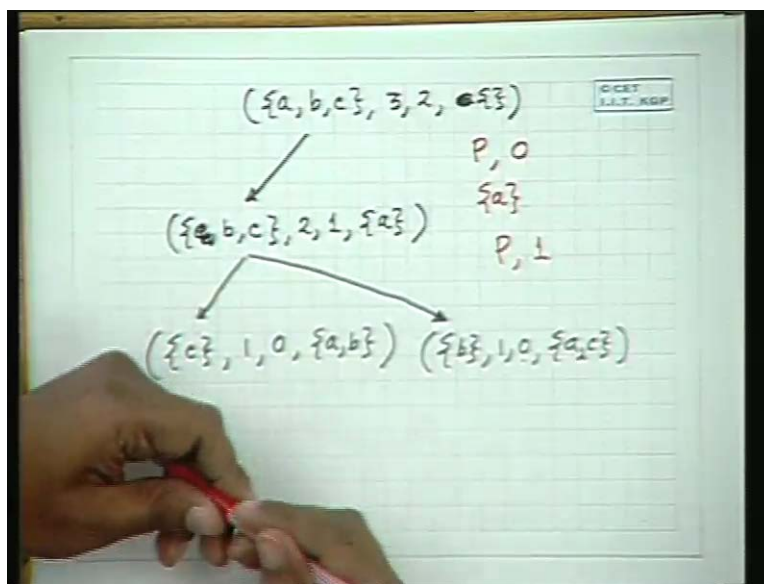 ({a,b,c}, 3, 2, {})
©CET
I.I.T. KGP
P, 0
{a}
({b,c}, 2, 1, {a})
P, 1
({c}, 1, 0, {a,b}) ({b}, 1, 0, {a,c})